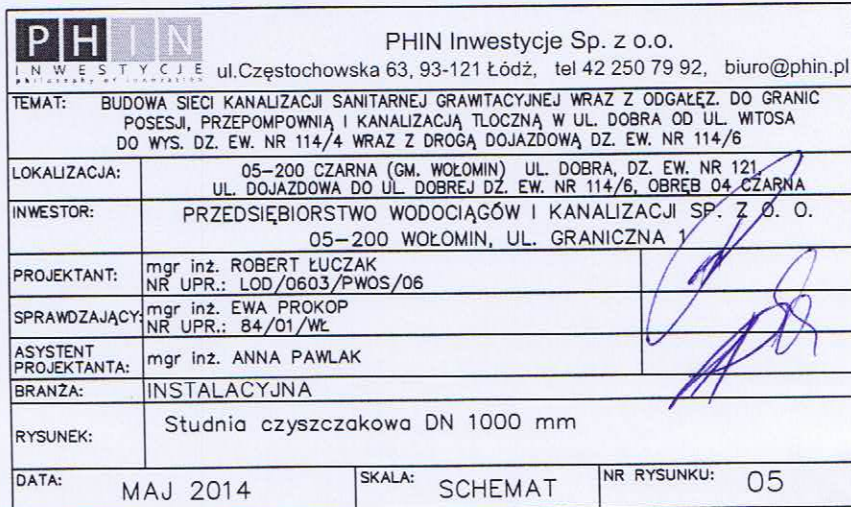 PHIN
INWESTYCJE
philosophy of innovation
PHIN Inwestycje Sp. z o.o.
ul.Częstochowska 63, 93-121 Łódź, tel 42 250 79 92, biuro@phin.pl
TEMAT: BUDOWA SIECI KANALIZACJI SANITARNEJ GRAWITACYJNEJ WRAZ Z ODGAŁĘZ. DO GRANIC
POSESJI, PRZEPOMPOWNIĄ I KANALIZACJĄ TŁOCZNĄ W UL. DOBRA OD UL. WITOSA
DO WYS. DZ. EW. NR 114/4 WRAZ Z DROGĄ DOJAZDOWĄ DZ. EW. NR 114/6
LOKALIZACJA: 05-200 CZARNA (GM. WOŁOMIN) UL. DOBRA, DZ. EW. NR 121,
UL. DOJAZDOWA DO UL. DOBREJ DZ. EW. NR 114/6, OBRĘB 04 CZARNA
INWESTOR: PRZEDSIĘBIORSTWO WODOCIĄGÓW I KANALIZACJI SP. Z O. O.
05-200 WOŁOMIN, UL. GRANICZNA 1
PROJEKTANT: mgr inż. ROBERT ŁUCZAK
NR UPR.: LOD/0603/PWOS/06
SPRAWDZAJĄCY: mgr inż. EWA PROKOP
NR UPR.: 84/01/WŁ
ASYSTENT
PROJEKTANTA: mgr inż. ANNA PAWLAK
BRANŻA: INSTALACYJNA
RYSUNEK: Studnia czyszczakowa DN 1000 mm
DATA: MAJ 2014 SKALA: SCHEMAT NR RYSUNKU: 05